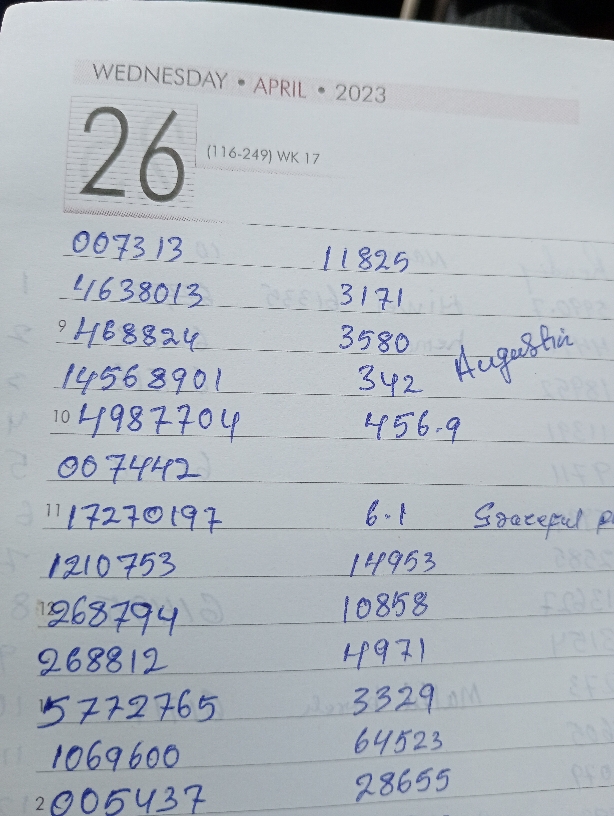 WEDNESDAY • APRIL • 2023
26 (116-249) WK 17
007313 11825
4638013 3171
9 468824 3580
Augustin
14568901 342
10 4987704 456.9
007442
11 17270197 6.1
1210753 14953
12 268794 10858
268812 4971
1 5772765 3329
1069600 64523
2 005437 28655